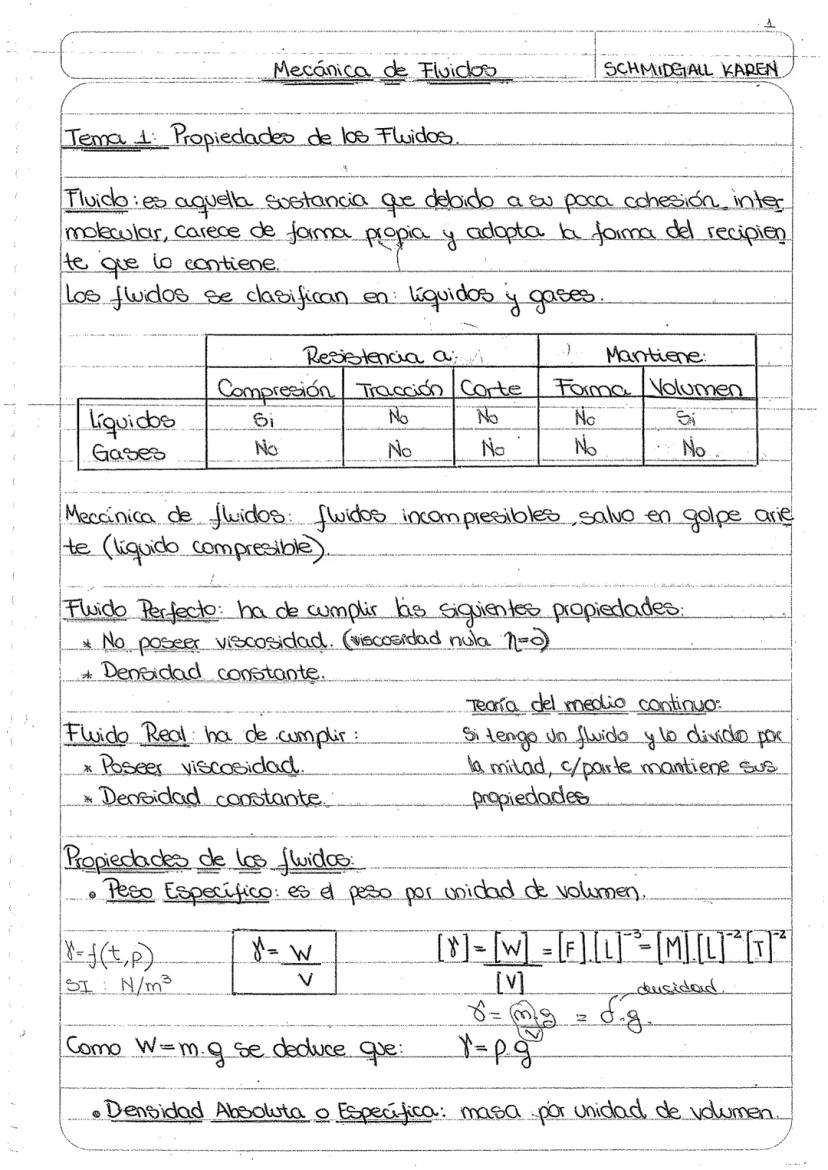 1
Mecánica de Fluidos
SCHMIDGALL KAREN
Tema 1: Propiedades de los Fluidos.
Fluido: es aquella sustancia que debido a su poca cohesión inter
molecular, carece de forma propia y adopta la forma del recipien
te que lo contiene.
Los fluidos se clasifican en: líquidos y gases.
Resistencia a: Mantiene:
Compresión Tracción Corte Forma Volumen
Líquidos Si No No No Si
Gases No No No No No.
Mecánica de fluidos: fluidos incompresibles, salvo en golpe arie
te (líquido compresible).
Fluido Perfecto: ha de cumplir las siguientes propiedades:
* No poseer viscosidad. (viscosidad nula η=0)
* Densidad constante.
Fluido Real: ha de cumplir:
* Poseer viscosidad.
* Densidad constante.
Teoría del medio continuo:
Si tengo un fluido y lo divido por
la mitad, c/parte mantiene sus
propiedades
Propiedades de los fluidos:
• Peso Específico: es el peso por unidad de volumen.
γ=f(t,p)
SI: N/m³
γ = W / V
[γ] = [W] / [V] = [F].[L]⁻³ = [M].[L]⁻²[T]⁻²
densidad
γ = m.g / V = δ.g.
Como W=m.g se deduce que: γ=ρ.g
• Densidad Absoluta o Específica: masa por unidad de volumen.